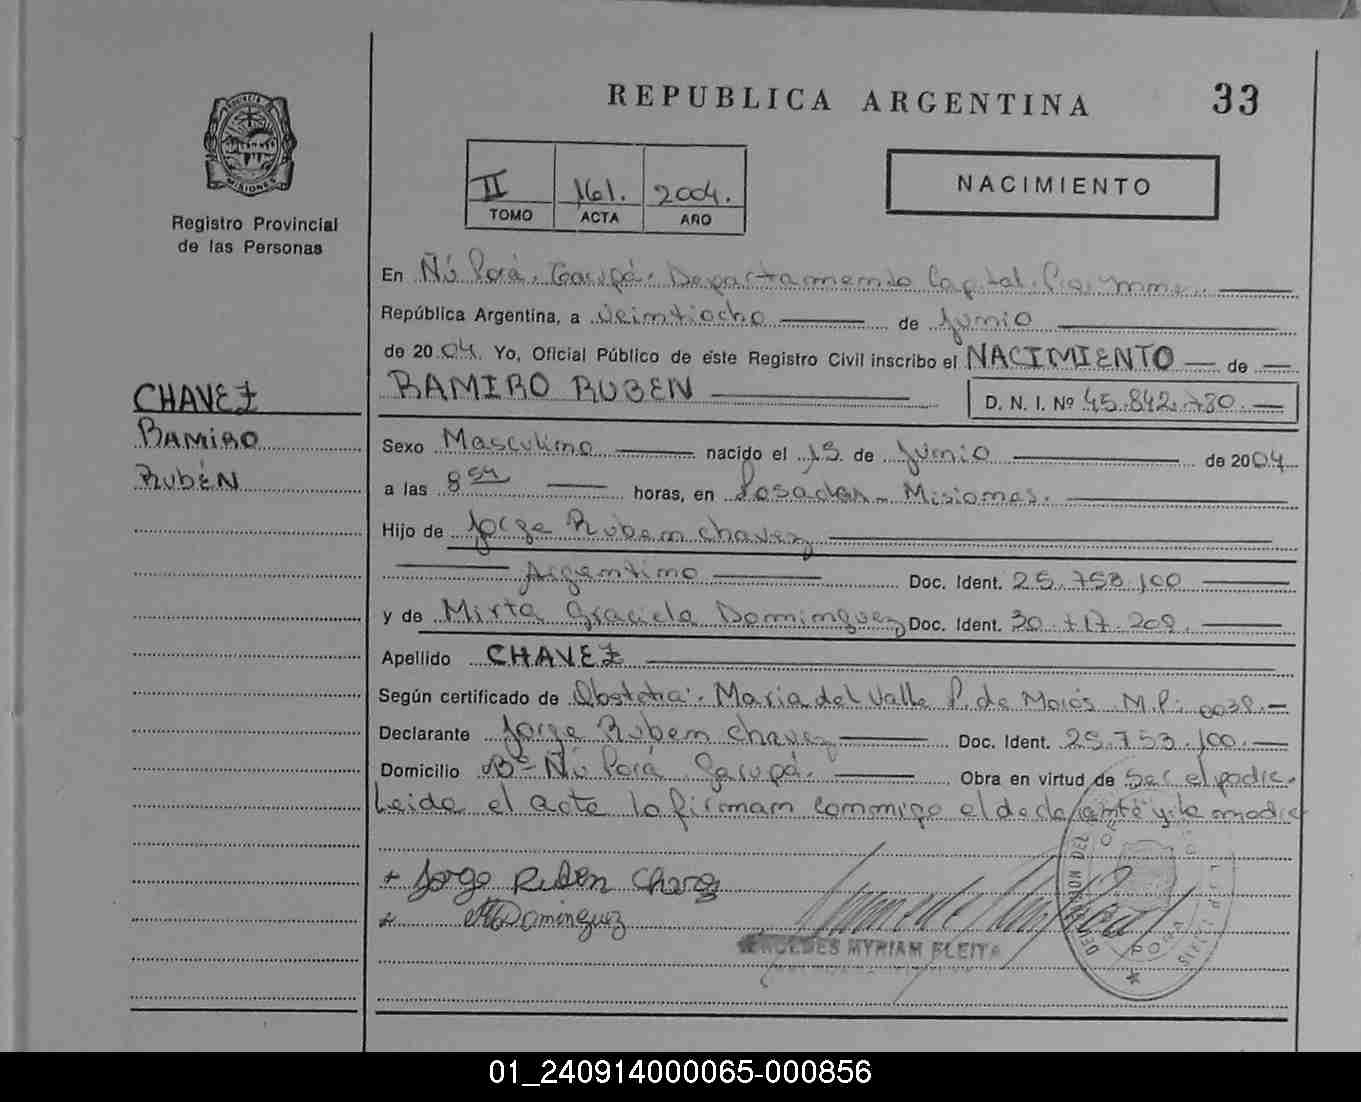 REPUBLICA ARGENTINA
33
PROVINCIA DE
MISIONES
Registro Provincial
de las Personas
II 161. 2004.
TOMO ACTA AÑO
NACIMIENTO
En Ñú Porá. Garupá. Departamento Capital. Pcia. Mnes.
República Argentina, a veintiocho de Junio
de 2004. Yo, Oficial Público de este Registro Civil inscribo el NACIMIENTO de
RAMIRO RUBEN D. N. I. Nº 45.842.780.
CHAVEZ
RAMIRO
RUBÉN
Sexo Masculino nacido el 15 de Junio de 2004
a las 8 horas, en Posadas Misiones.
Hijo de Jorge Ruben Chavez
Argentino Doc. Ident. 25.753.100
y de Mirta Graciela Dominguez Doc. Ident. 30.717.209.
Apellido CHAVEZ
Según certificado de Obstetra: Maria del Valle P. de M.P:
Declarante Jorge Ruben Chavez Doc. Ident. 25.753.100.
Domicilio Bº Ñú Porá Garupá. Obra en virtud de Ser el padre.
Leida el acta la firman conmigo el declarante y la madre
+ Jorge Ruben Chavez
+ M Dominguez
MERCEDES MYRIAM FLEITA
01_240914000065-000856